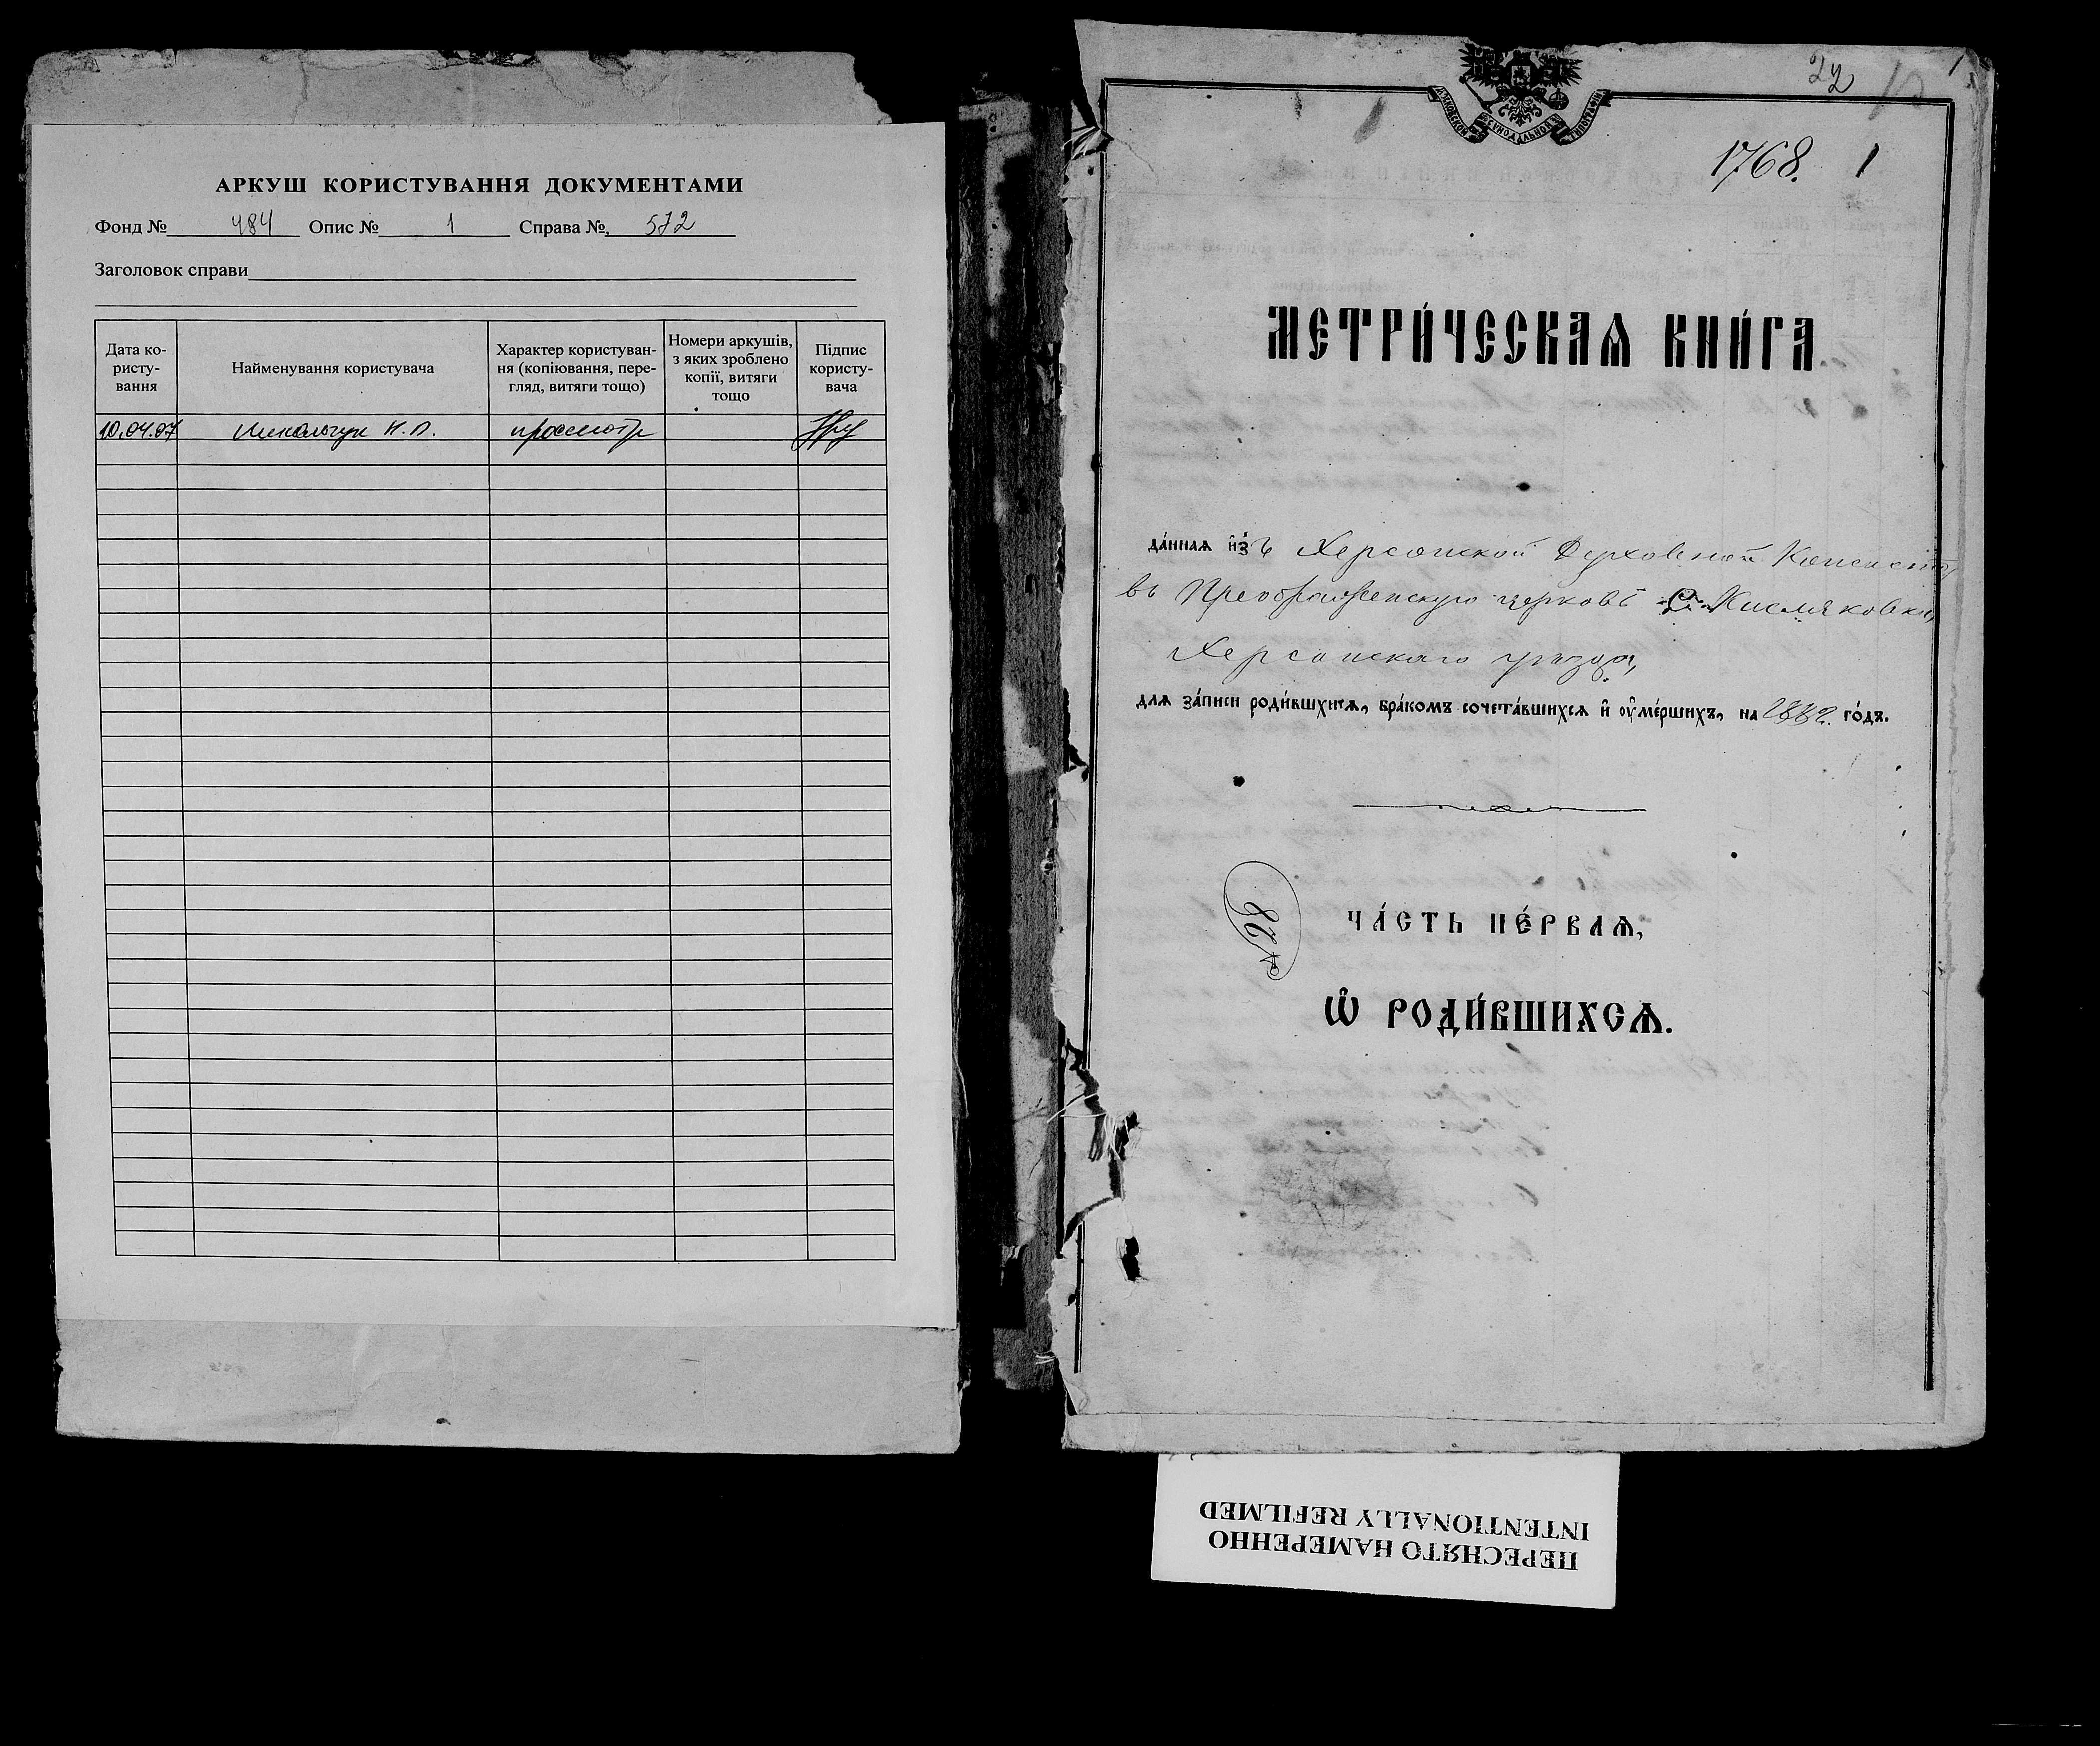 АРКУШ КОРИСТУВАННЯ ДОКУМЕНТАМИ
Фонд № 484 Опис № 1 Справа № 572
Заголовок справи
Дата ко-
ристу-
вання
Найменування користувача
Характер користуван-
ня (копіювання, пере-
гляд, витяги тощо)
Номери аркушів,
з яких зроблено
копії, витяги
тощо
Підпис
користу-
вача
10.04.07 Николайчук Н.П. просмотр
22
1
МОСКОВСКОЙ СѴНОДАЛЬНОЙ ТИПОГРАФІИ
1768. 1
МЕТРИ́ЧЕСКАѦ КНИ́ГА
да́ннаѧ и҆зъ Херсонской Духовной Консист
въ Преображенскую церковь С. Кисляковки,
Херсонскаго уѣзда,
длѧ за́писи роди́вшихсѧ, бра́комъ сочета́вшихсѧ и҆ ᲂу҆ме́ршихъ, на 1882. го́дъ.
№28
ЧА́СТЬ ПЕ́РВАѦ,
Ѽ РОДИ́ВШИХСѦ.
ПЕРЕСНЯТО НАМЕРЕННО
INTENTIONALLY REFILMED